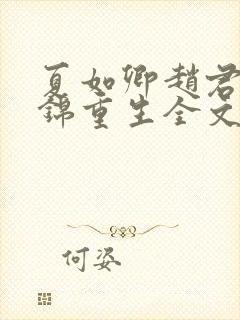 夏如卿趙君
錦重生全文
何姿